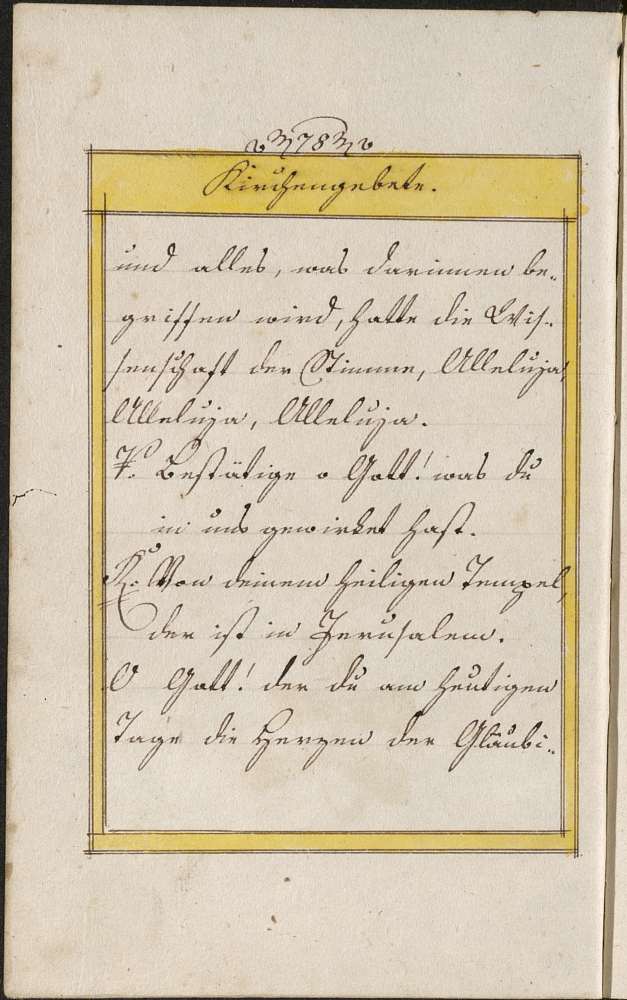 78
Kirchengebete.
und alles, was darinnen be-
griffen wird, hatte die Wis-
senschaft der Stimme, Alleluja,
Alleluja, Alleluja.
℣. Bestätige o Gott! was du
in uns gewirket hast.
℟. Von deinem heiligen Tempel,
der ist in Jerusalem.
O Gott! der du am heutigen
Tage die Herzen der Glaubi-